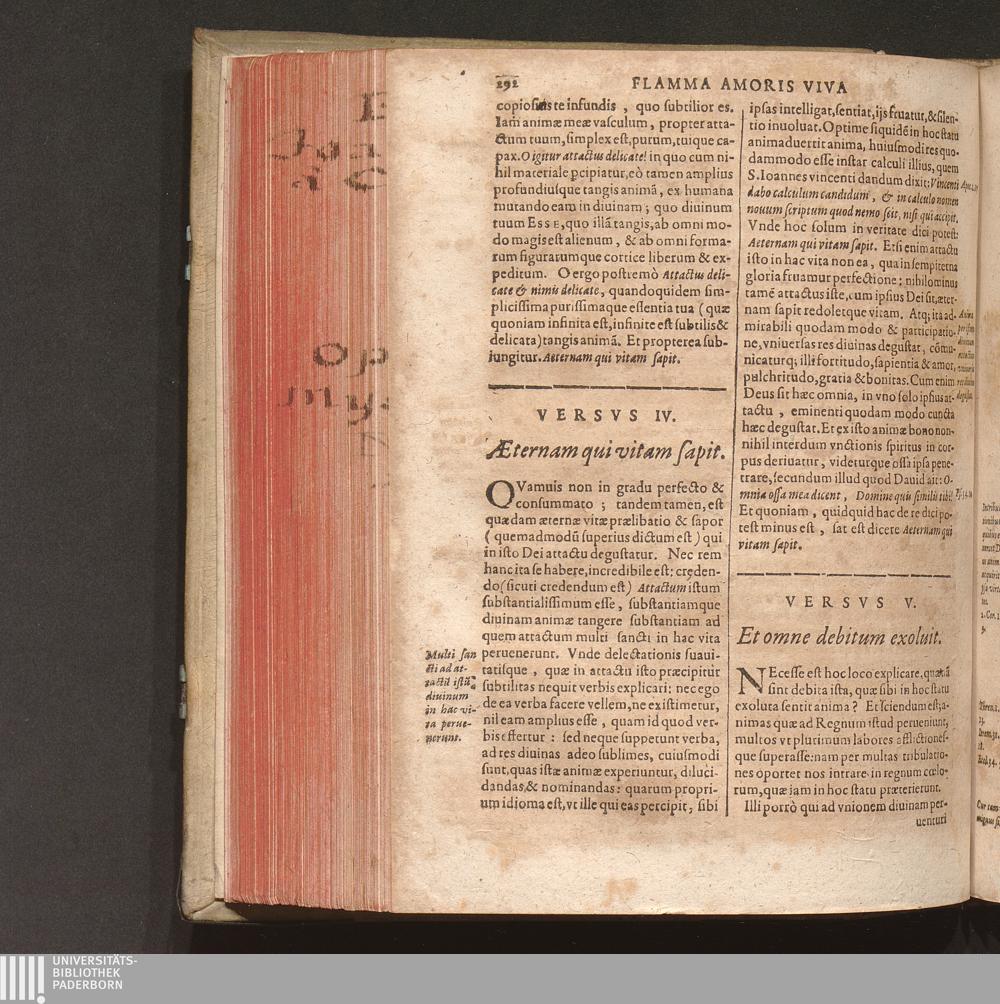 292
FLAMMA AMORIS VIVA
te infundis, quo subtilior es.
Iam̃ animæ meæ vasculum, propter atta-
ctum tuum, simplex est, purum, tuique ca-
pax. O igitur attactus delicate! in quo cum ni-
hil materiale pcipiatur, eò tamen amplius
profundiusque tangis animã, ex humana
mutando eam in diuinam; quo diuinum
tuum ESSE, quo illã tangis, ab omni mo-
do magis est alienum, & ab omni forma-
rum figurarumque cortice liberum & ex-
peditum. O ergo postremò Attactus deli-
cate & nimis delicate, quandoquidem sim-
plicissima purissimaque essentia tua (quæ
quoniam infinita est, infinite est subtilis &
delicata) tangis animã. Et propterea sub-
iungitur. Aeternam qui vitam sapit.
VERSVS IV.
Æternam qui vitam sapit.
QVamuis non in gradu perfecto &
consummato; tandem tamen, est
quædam æternæ vitæ prælibatio & sapor
(quemadmodũ superius dictum est) qui
in isto Dei attactu degustatur. Nec rem
hanc ita se habere, incredibile est: creden-
do (sicuti credendum est) Attactum istum
substantialissimum esse, substantiamque
diuinam animæ tangere substantiam ad
quem attactum multi sancti in hac vita
peruenerunt. Vnde delectationis suaui-
tatisque, quæ in attactu isto præcipitur
subtilitas nequit verbis explicari: nec ego
de ea verba facere vellem, ne existimetur,
nil eam amplius esse, quam id quod ver-
bis effertur: sed neque suppetunt verba,
ad res diuinas adeo sublimes, cuiusmodi
sunt, quas istæ animæ experiuntur, diluci-
dandas, & nominandas: quarum propri-
um idioma est, vt ille qui eas percipit, sibi
Multi san
cti ad at-
tactũ istũ
diuinum
in hac vi-
ta perue-
nerunt.
ipsas intelligat, sentiat, ijs fruatur, & silen-
tio inuoluat. Optime siquidẽ in hoc statu
animaduertit anima, huiusmodi res quo-
dammodo esse instar calculi illius, quem
S. Ioannes vincenti dandum dixit: Vincenti
dabo calculum candidum, & in calculo nomen
nouum scriptum quod nemo scit, nisi qui accipit.
Vnde hoc solum in veritate dici potest:
Aeternam qui vitam sapit. Etsi enim attactu
isto in hac vita non ea, qua in sempiterna
gloria fruamur perfectione; nihilominus
tamẽ attactus iste, cum ipsius Dei sit, æter-
nam sapit redoletque vitam. Atq; ita ad-
mirabili quodam modo & participatio-
ne, vniuersas res diuinas degustat, cõmu-
nicaturq; illi fortitudo, sapientia & amor,
pulchritudo, gratia & bonitas. Cum enim
Deus sit hæc omnia, in vno solo ipsius at-
tactu, eminenti quodam modo cuncta
hæc degustat. Et ex isto animæ bono non-
nihil interdum vnctionis spiritus in cor-
pus deriuatur, videturque ossa ipsa pene-
trare, secundum illud quod Dauid ait: O-
mnia ossa mea dicent, Domine quis similis tibi?
Et quoniam, quidquid hac de re dici po-
test minus est, sat est dicere Aeternam qui
vitam sapit.
VERSVS V.
Et omne debitum exoluit.
NEcesse est hoc loco explicare, quænã
sint debita ista, quæ sibi in hoc statu
exoluta sentit anima? Et sciendum est; a-
nimas quæ ad Regnum istud perueniunt,
multos vt plurimum labores afflictiones-
que superasse: nam per multas tribulatio-
nes oportet nos intrare in regnum cœlo-
rum, quæ iam in hoc statu præterierunt.
Illi porrò qui ad vnionem diuinam per-
uenturi
UNIVERSITÄTS-
BIBLIOTHEK
PADERBORN